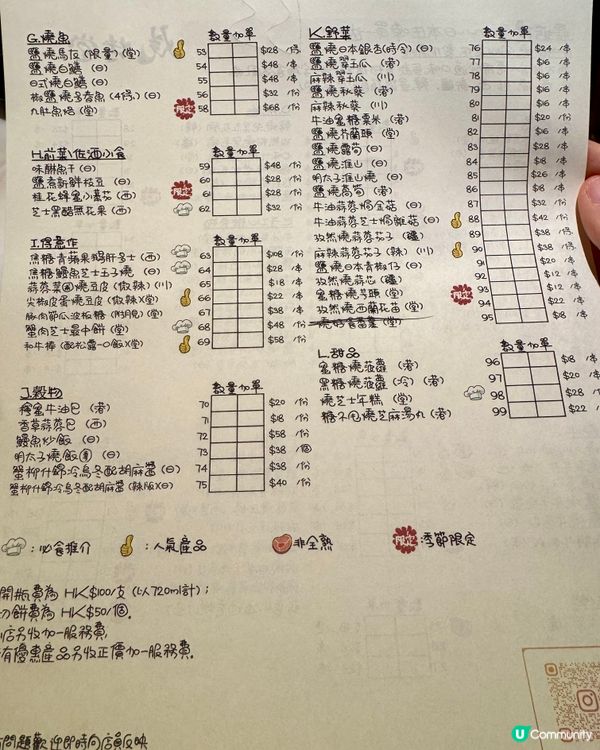 G.燒魚 數量加單
鹽燒馬友(限量)(堂) 53 $28 /份
鹽燒白鱔 (日) 54 $48 /本
日式燒白鱔 (日) 55 $48 /本
椒鹽燒多春魚(4條) (日) 56 $32 /份
九肚魚焙 (堂) 限定 58 $68 /份
H.前菜\佐酒小食 數量加單
味醂魚干 (日) 59 $48 /份
鹽煮新鮮枝豆 (日) 60 $28 /份
桂花蜂蜜小番茄 (西) 限定 61 $28 /份
芝士黑醋無花果 (西) 62 $32 /份
I.得意作 數量加單
焦糖青蘋果鵝肝多士 (西) 63 $108 /份
焦糖鰻魚芝士玉子燒 (日) 64 $28 /本
蒜蓉菜圃燒豆皮(微辣) (川) 65 $18 /本
尖椒皮蛋燒豆皮(微辣)(堂) 66 $22 /本
豚肉節瓜波板糖 (附說) (堂) 67 $38 /本
蟹肉芝士最中餅 (堂) 68 $48 /份
和牛棒 (配松露一口飯)(堂) 69 $58 /份
J.穀物 數量加單
糖蜜牛油包 (港) 70 $20 /份
香草蒜蓉包 (西) 71 $18 /份
鰻魚炒飯 (日) 72 $58 /份
明太子燒飯團 (日) 73 $38 /個
蟹柳什錦冷烏冬配胡麻醬 (日) 74 $38 /份
蟹柳什錦冷烏冬配胡麻醬 (辣版)(日) 75 $40 /份
K.野菜 數量加單
鹽燒日本銀杏(時令) (日) 76 $24 /本
鹽燒翠玉瓜 (港) 77 $16 /本
麻辣翠玉瓜 (川) 78 $16 /本
鹽燒秋葵 (港) 79 $16 /本
麻辣秋葵 (川) 80 $16 /本
牛油蜜糖粟米 (港) 81 $20 /份
鹽燒芥蘭頭 (堂) 82 $16 /本
鹽燒露筍 (日) 83 $28 /本
鹽燒淮山 (日) 84 $16 /本
明太子燒淮山 (日) 85 $26 /本
鹽燒萵筍 (港) 86 $8 /本
牛油蒜蓉焗金菇 (日) 87 /份
牛油蒜蓉芝士焗雜菇 (日) 88 $42 /份
孜然燒蒜蓉茄子 (疆) 89 $38
麻辣蒜蓉茄子(辣) (川) 90 $38 /份
鹽燒日本青椒仔 (日) 91 $20
孜然燒蒜芯 (疆) 92 $12 /本
蜜糖燒芋頭 (堂) 限定 93 $12 /本
孜然燒西蘭花苗 (堂) 94 $22 /本
燒時菜番薯 (堂) 95 $8 /本
L.甜品 數量加單
蜜糖燒菠蘿 (港) 96 $18 /本
黑糖燒菠蘿(冷) (港) 97 $20
燒芝士年糕 (堂) 98 $28 /本
糖不甩燒芝麻湯丸 (港) 99 $22 /本
:必食推介 :人氣產品 :非全熟 限定:季節限定
開瓶費為 HK$100/支 (以720ml計);
切餅費為 HK$50/個。
店另收加一服務費,
有優惠產品另收正價加一服務費。
問題歡迎即時向店員反映
U Community